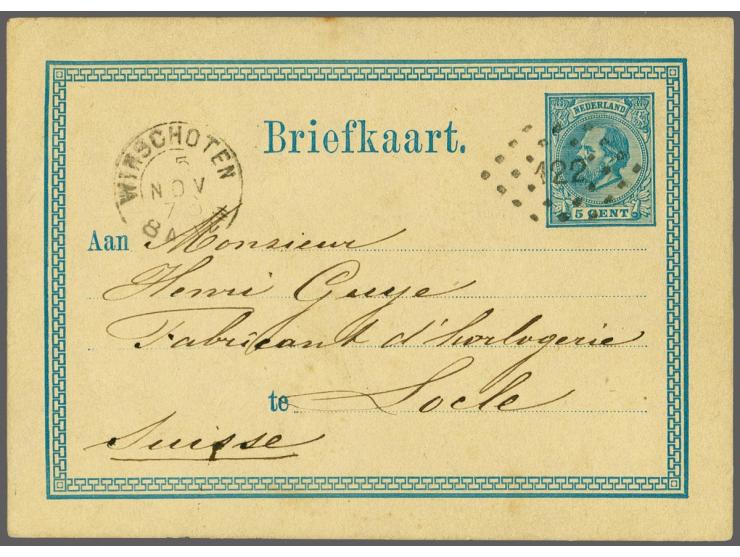 NEDERLAND
Briefkaart.
WINSCHOTEN
5
NOV
122
5 CENT
Aan Monsieur
Henri Guye
Fabricant d'horlogerie
te Locle
Suisse